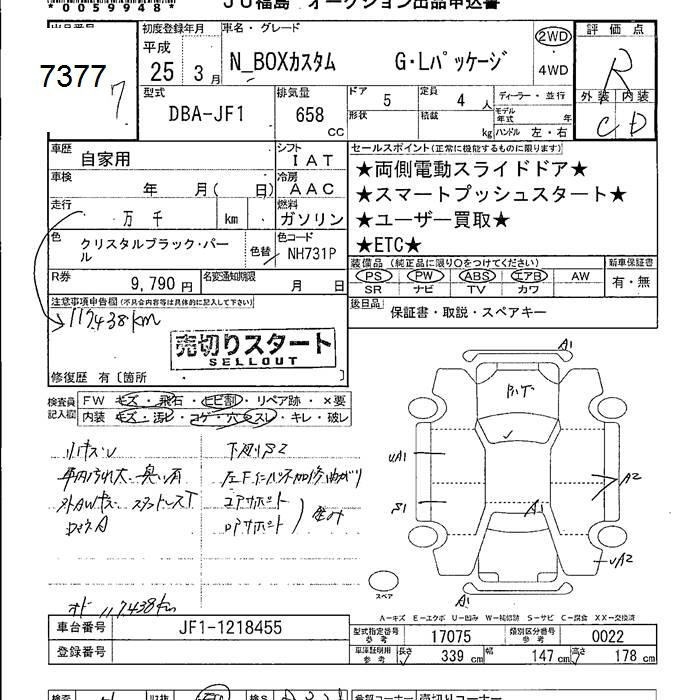 *0059948*
JU福島 オークション出品申込書
出品番号
7377
7
初度登録年月
平成
25 3月
車名・グレード
N_BOXカスタム G・Lパッケージ
2WD
4WD
評価点
R
外装 内装
C D
型式
DBA-JF1
排気量
658
CC
ドア 5
形状
定員 4 人
積載 kg
ディーラー・並行
モデル年式 年
ハンドル 左・右
車歴
自家用
シフト
IAT
車検
年 月( 日)
冷房
AAC
走行
万 千 km
燃料
ガソリン
色
クリスタルブラック・パール
色替
色コード
NH731P
R券
9,790 円
名変通知期限
月 日
セールスポイント(正常に機能するものに限ります)
★両側電動スライドドア★
★スマートプッシュスタート★
★ユーザー買取★
★ETC★
装備品(純正品に限り○をつけてください)
PS PW ABS エアB AW
SR ナビ TV カワ
新車保証書
有・無
後日品
保証書・取説・スペアキー
注意事項申告欄(不具合内容等は具体的に記入して下さい)
117438km
売切りスタート
SELLOUT
修復歴 有〔箇所 〕
検査員記入欄
FW キズ・飛石・ヒビ割・リペア跡・×要
内装 キズ・汚レ・コゲ・穴・スレ・キレ・破レ
小キズU
下廻りサビ
A1
UA1
A2
S1
A1
UA2
A1
スペア
オド 117438km
A-キズ E-エクボ U-凹み W-補修跡 S-サビ C-腐食 XX-交換済
車台番号
JF1-1218455
登録番号
型式指定番号 参考
17075
類別区分番号 参考
0022
車庫証明用 参考
長さ 339 cm 幅 147 cm 高さ 178 cm